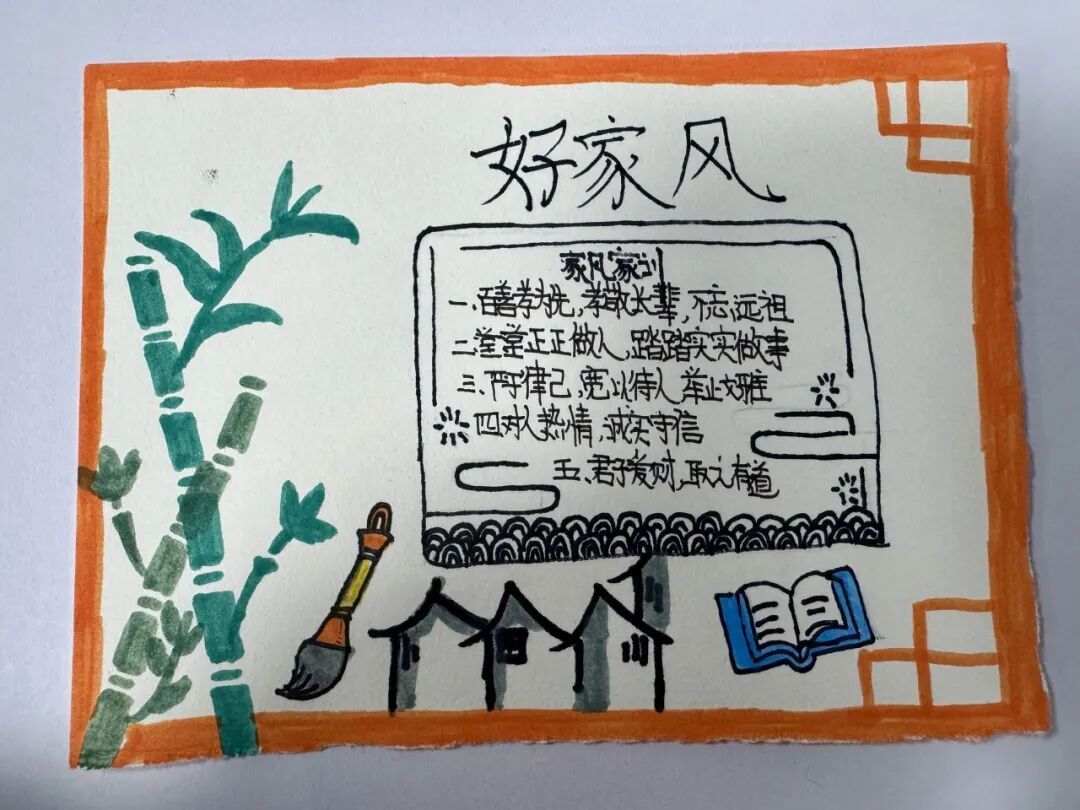 好家风
家风家训
一、百善孝为先,孝敬长辈,不忘远祖
二、堂堂正正做人,踏踏实实做事
三、严于律己,宽以待人 举止文雅
四对人热情,诚实守信
五、君子爱财,取之有道